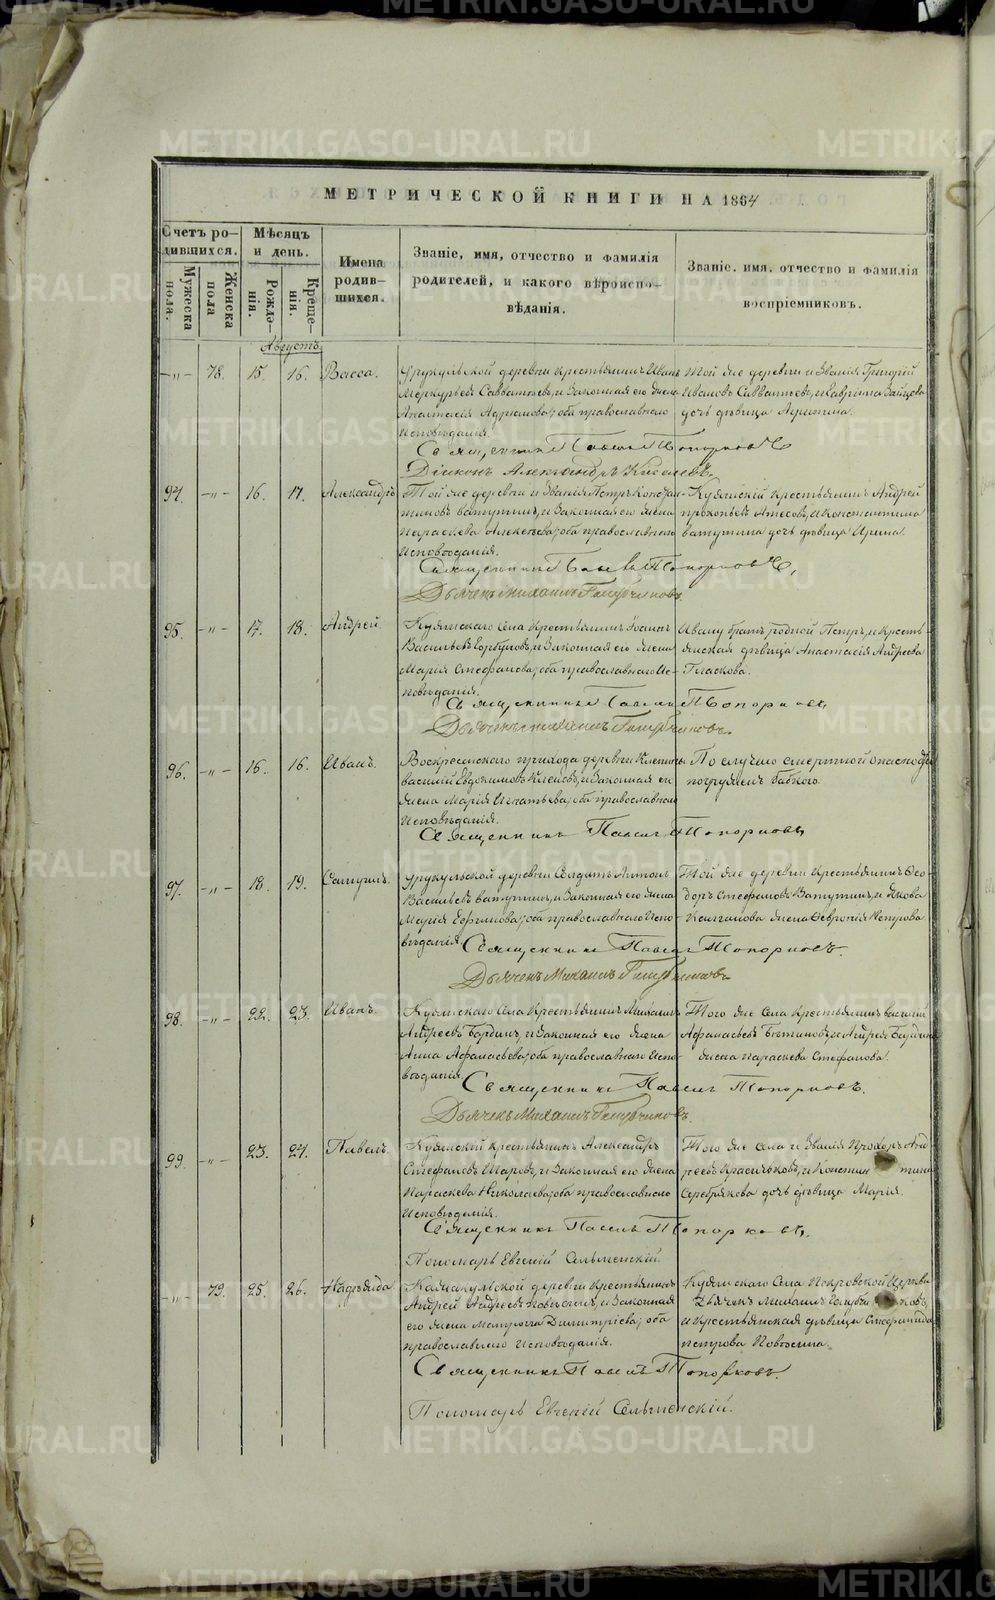 МЕТРИЧЕСКОЙ КНИГИ НА 1864
Счетъ ро-
дившихся.
Мѣсяцъ
и день.
Имена
родив-
шихся.
Званіе, имя, отчество и фамилія
родителей, и какого вѣроиспо-
вѣданія.
Званіе, имя, отчество и фамилія
воспріемниковъ.
Мужеска
пола.
Женска
пола
Рожде-
нія.
Креще-
нія.
Августъ
-„- 78. 15. 16. Васса.
деревни Крестьянинъ Иванъ
Меркурьевъ и Законная его жена
Анастасія Адріанова; оба православнаго
Исповѣданія.
Той же деревни и Званія Григорій
Ивановъ и Гавріила Зайцова
дочь дѣвица
Священникъ Павелъ Топорковъ
Діаконъ Александръ Киселевъ.
94. -„- 16. 17. Александръ
Той же деревни и Званія Петръ Констан-
тиновъ Ватутинъ, и Законная его жена
Параскева Алексѣева; оба православнаго
Исповѣданія.
Крестьянинъ Андрей
Прокопьевъ и Константина
Ватутина дочь дѣвица Ирина.
Священникъ Павелъ Топорковъ.
Дьячекъ Михаилъ Голубчиковъ.
95. -„- 17. 18. Андрей.
Села Крестьянинъ Іоаннъ
Васильевъ Горбуновъ, и Законная его жена
Марія Стефанова; оба православнаго Ис-
повѣданія.
Ивану братъ родной Петръ, и Кресть-
янская дѣвица Анастасія Андреева
Гласкова.
Священникъ Павелъ Топорковъ
Дьячекъ Михаилъ Голубчиковъ.
96. -„- 16. 16. Иванъ.
Воскресенскаго прихода деревни
Василій Евдокимовъ и Законная его
жена Марія Игнатьева; оба православнаго
Исповѣданія.
По случаю смертной опасности
погруженъ бабкою.
Священникъ Павелъ Топорковъ
97. -„- 18. 19. Самуилъ.
деревни Солдатъ Антонъ
Васильевъ Ватутинъ, и Законная его жена
Марія Ефимова; оба православнаго Испо-
вѣданія.
Той же деревни Крестьянинъ Ѳео-
доръ Стефановъ Ватутинъ, и Якова
жена Ѳевронія Петрова
Священникъ Павелъ Топорковъ.
Дьячекъ Михаилъ Голубчиковъ
98. -„- 22. 23. Иванъ.
Села Крестьянинъ Михаилъ
Андреевъ Бердинъ, и Законная его жена
Анна Афанасьева; оба православнаго Испо-
вѣданія
Того же села Крестьянинъ Василій
Афанасьевъ и Андрея
жена Параскева Стефанова.
Священникъ Павелъ Топорковъ.
Дьячекъ Михаилъ Голубчиковъ.
99. -„- 23. 24. Павелъ.
Крестьянинъ Александръ
Стефановъ Шаровъ, и Законная его жена
Параскева Николаева; оба православнаго
Исповѣданія.
Того же села и Званія Прохоръ Анд-
реевъ Красиковъ, и Констан тина
Серебрякова дочь дѣвица Марія.
Священникъ Павелъ Топорковъ.
Пономарь Евгеній Сельменскій.
-„- 79. 25. 26. Надежда
деревни Крестьянинъ
Андрей Андреевъ и Законная
его жена Матрона Димитріева; оба
православнаго Исповѣданія.
Села Покровской Церкви
Дьячекъ Михаилъ Голубчиковъ,
и Крестьянская дѣвица Стефанида
Петрова
Священникъ Павелъ Топорковъ.
Пономарь Евгеній Сельменскій.
METRIKI.GASO-URAL.RU